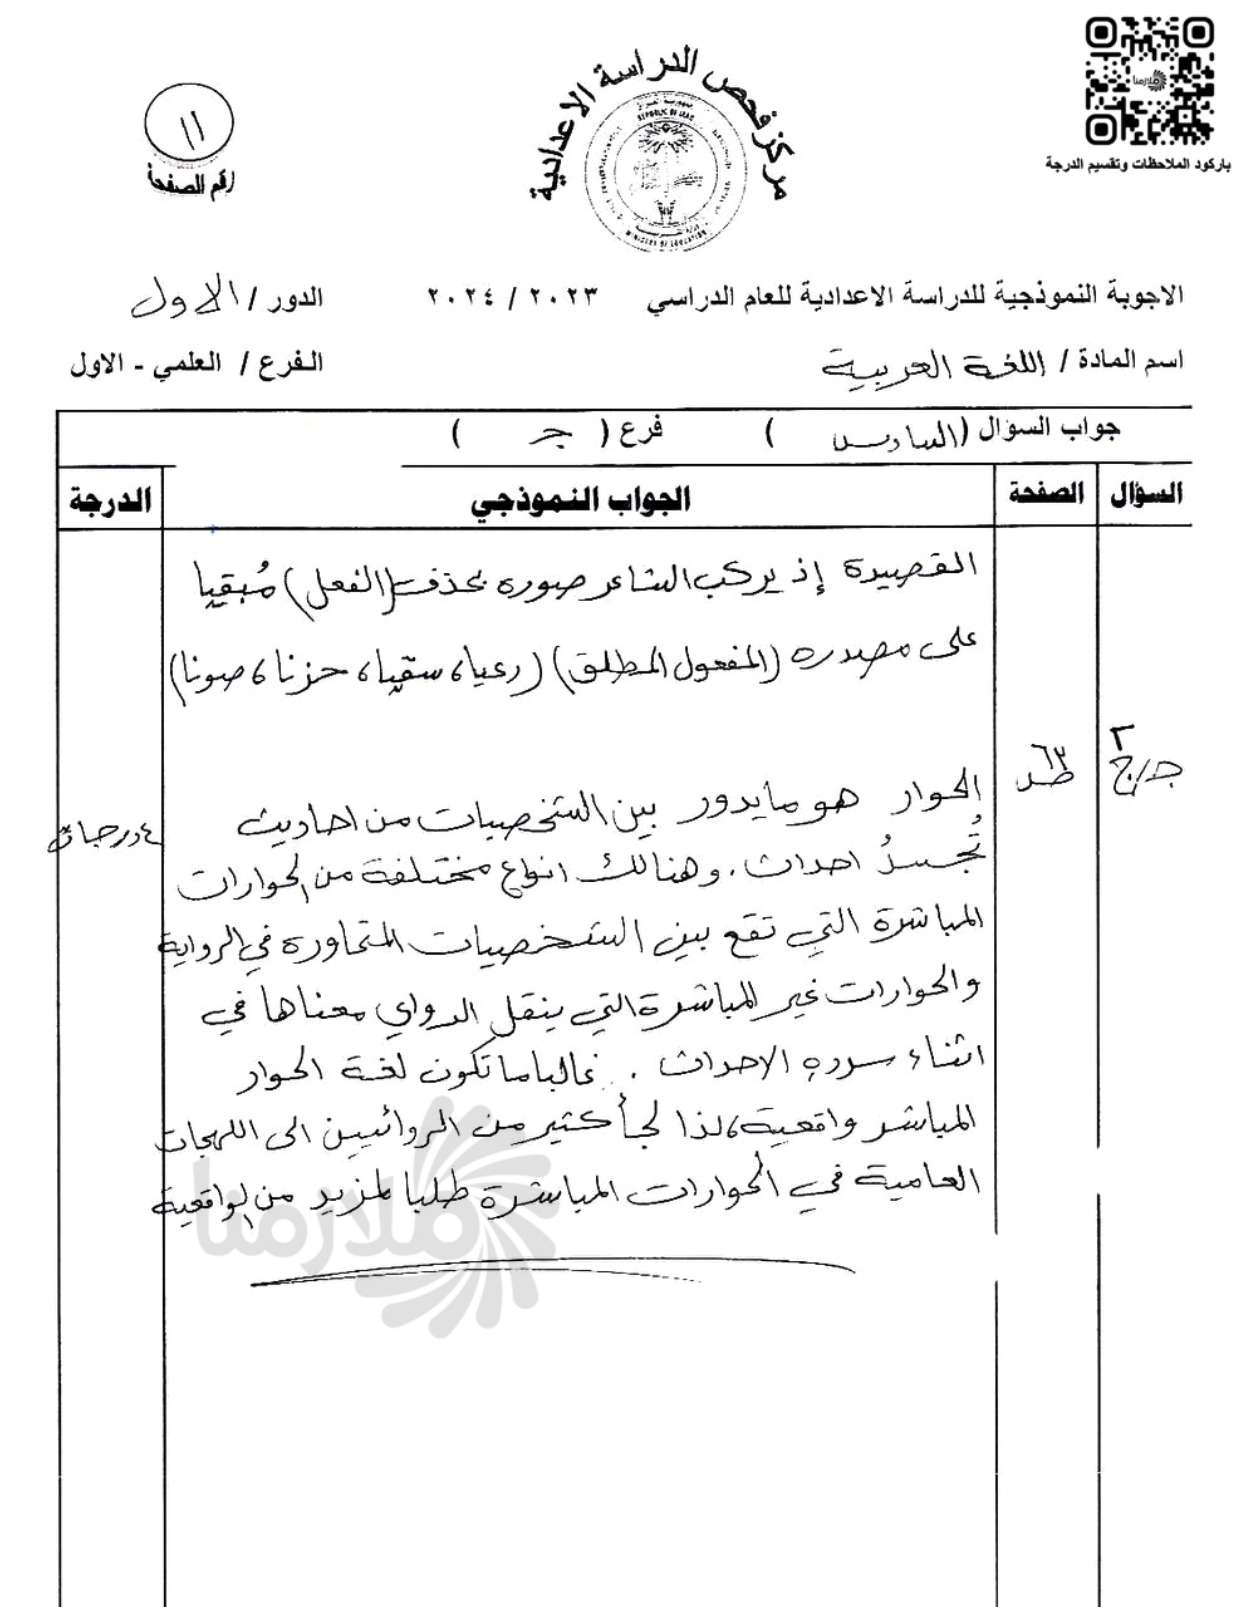 باركود الملاحظات وتقسيم الدرجة
مركز فحص الدراسة الاعدادية
REPUBLIC OF IRAQ
MINISTRY OF EDUCATION
١١
رقم الصفحة
الاجوبة النموذجية للدراسة الاعدادية للعام الدراسي ٢٠٢٣ / ٢٠٢٤ الدور / الاول
اسم المادة / اللغة العربية الفرع / العلمي - الاول
جواب السؤال (السادس ) فرع ( جـ )
السؤال الصفحة الجواب النموذجي الدرجة
القصيدة إذ يركب الشاعر صورة بحذف (الفعل) مُبقيا
على مصدره (المفعول المطلق) (رعيا، سقيا، حزنا، صونا)
٢
جـ/ج ص٦٣ الحوار هو ما يدور بين الشخصيات من احاديث ٤ درجات
تُجسدُ احداث. وهنالك انواع مختلفة من الحوارات
المباشرة التي تقع بين الشخصيات المتحاورة في الرواية
والحوارات غير المباشرة التي ينقل الرواي معناها في
اثناء سرده الاحداث . غالبا ما تكون لغة الحوار
المباشر واقعية، لذا لجأ كثير من الروائيين الى اللهجات
العامية في الحوارات المباشرة طلبا لمزيد من الواقعية
ملازمنا